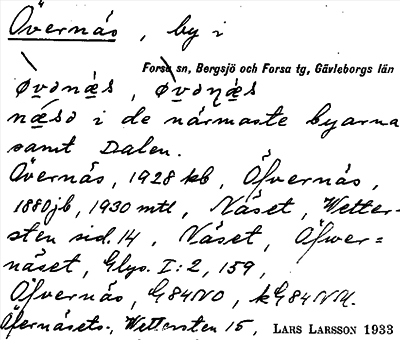 Övernäs, by i
Forsa sn, Bergsjö och Forsa tg, Gävleborgs län
næsə i de närmaste byarna
samt Dalen.
Övernäs, 1928 kb, Öfvernäs,
1880 jb, 1930 mtl, Näset, Wetter-
sten sid. 14, Näset, Öfwer=
näset, Glys. I:2, 159,
Öfvernäs, G84NO, kG84NU.
Öfernäsets, Wettersten 15, LARS LARSSON 1933